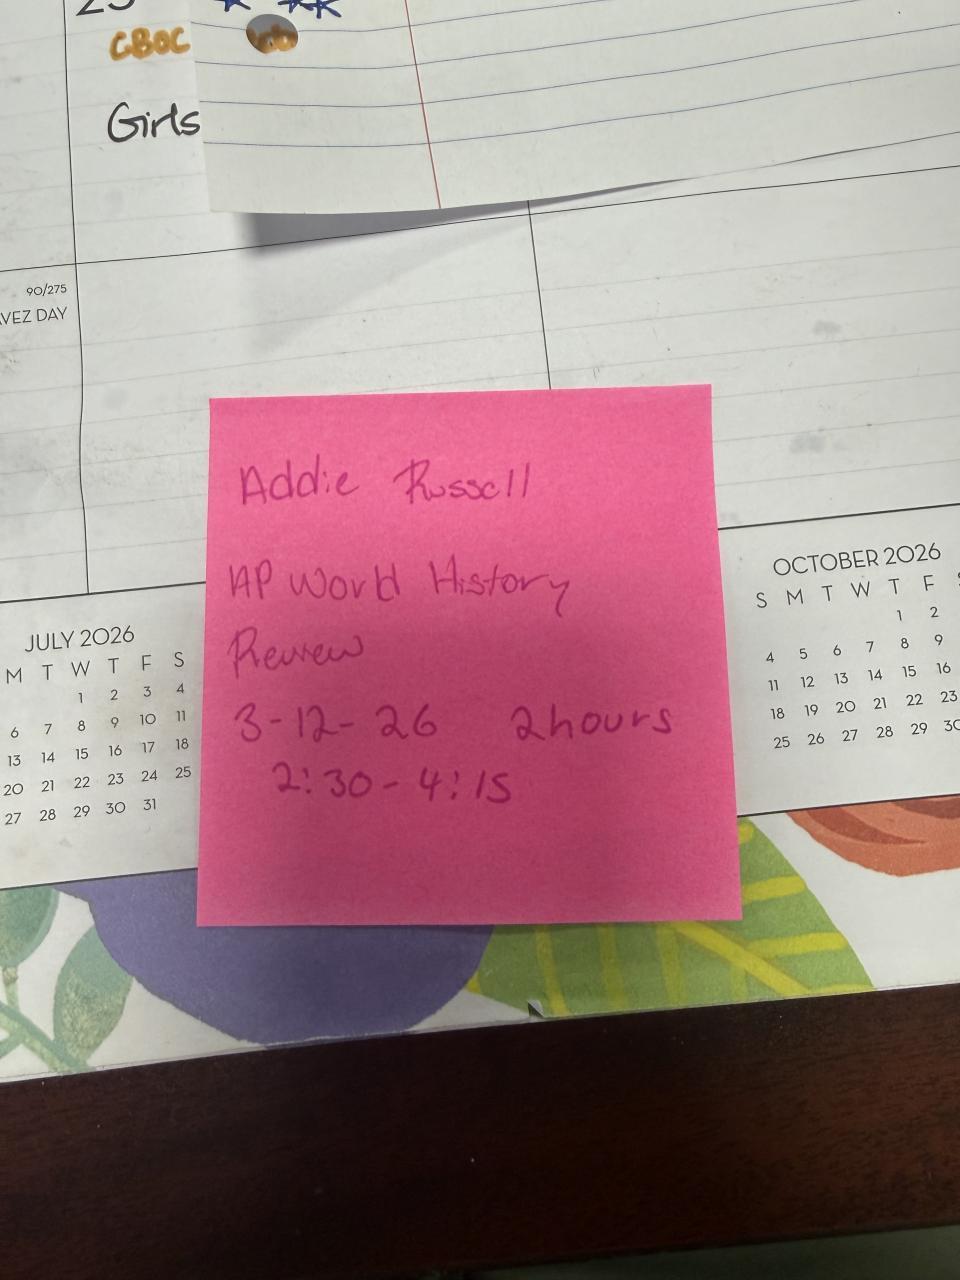 CBOC
Girls
90/275
VEZ DAY
Addie Russell
AP World History
Review
3-12-26 2hours
2:30-4:15
JULY 2026
M T W T F S
1 2 3 4
6 7 8 9 10 11
13 14 15 16 17 18
20 21 22 23 24 25
27 28 29 30 31
OCTOBER 2026
S M T W T F
1 2
4 5 6 7 8 9
11 12 13 14 15 16
18 19 20 21 22 23
25 26 27 28 29 30